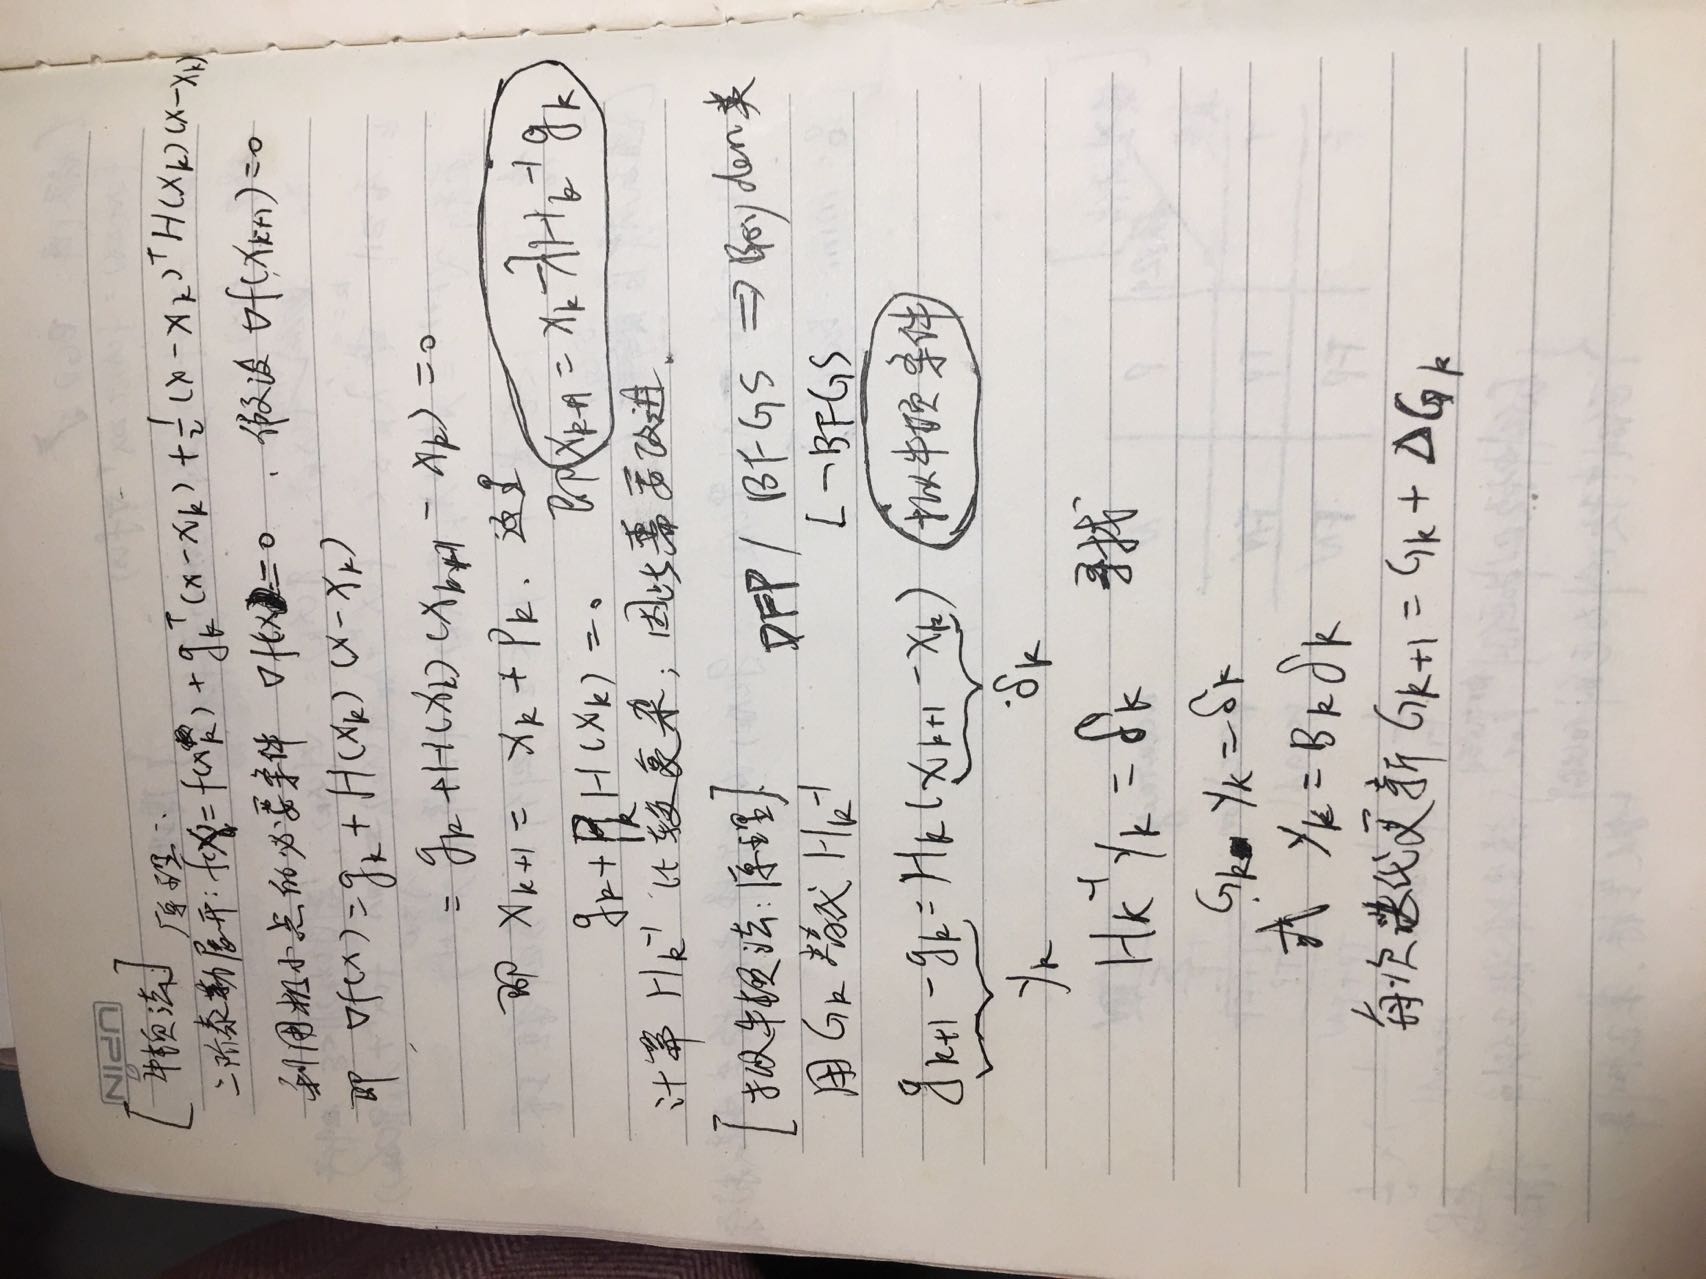 UPIN
[牛顿法] 原理:
二阶泰勒展开: f(x) = f(x_k) + g_k^T (x-x_k) + 1/2 (x-x_k)^T H(x_k) (x-x_k)
利用极小点的必要条件 ∇f(x)=0 . 假设 ∇f(x_{k+1})=0
即 ∇f(x) = g_k + H(x_k) (x-x_k)
= g_k + H(x_k) (x_{k+1} - x_k) = 0
即 x_{k+1} = x_k + P_k. 这里
g_k + P_k H(x_k) = 0 即 x_{k+1} = x_k - λ H_k^{-1} g_k
计算 H_k^{-1} 比较复杂; 因此需要改进.
[拟牛顿法:原理]. DFP / BFGS ⇒ Broyden类
用 G_k 替代 H_k^{-1} L-BFGS
g_{k+1} - g_k = H_k (x_{k+1} - x_k) 拟牛顿条件
y_k δ_k
H_k^{-1} y_k = δ_k 寻找
G_k y_k = δ_k
或 y_k = B_k δ_k
每次迭代更新 G_{k+1} = G_k + ΔG_k